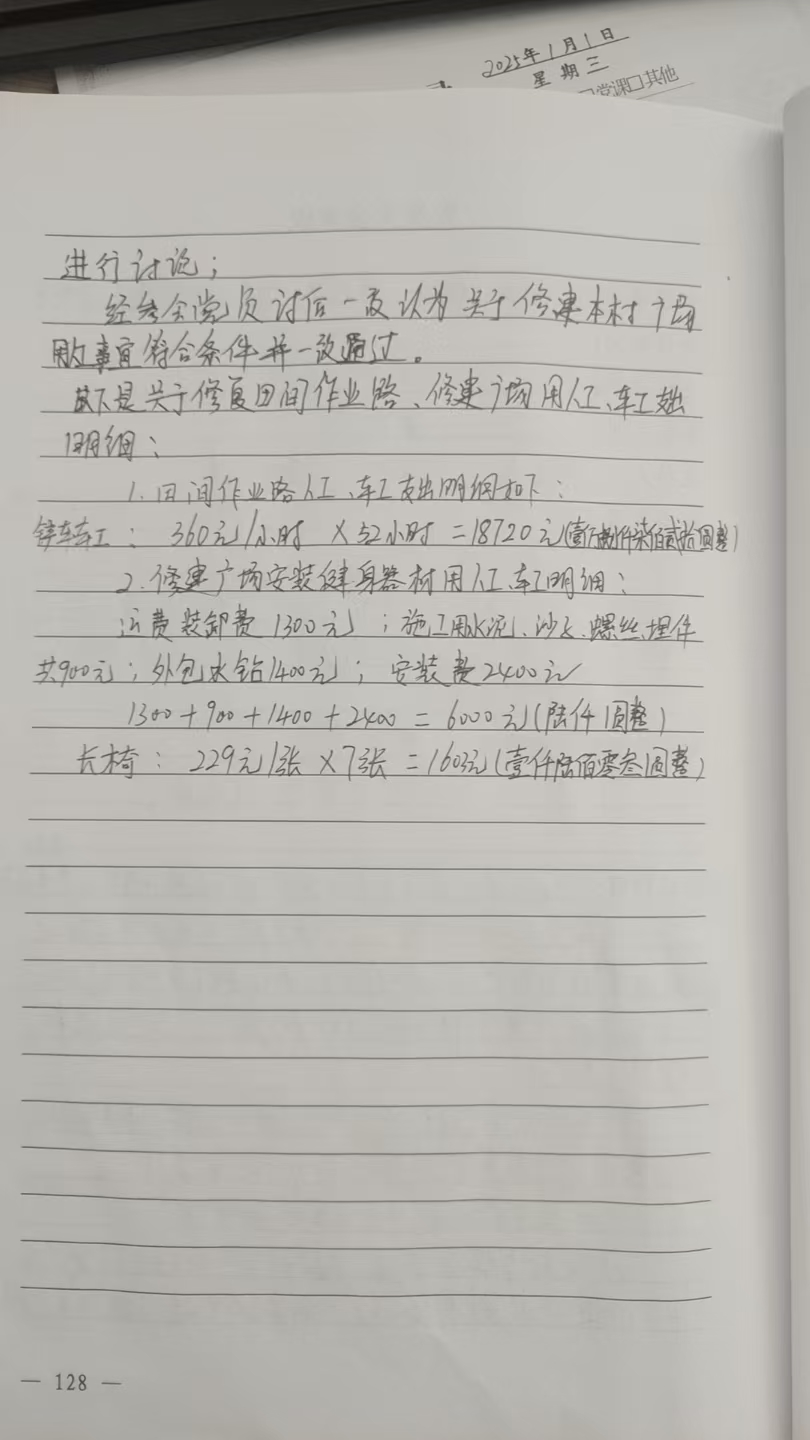 2025年1月1日
星期三
党课□其他
进行讨论；
经参会党员讨后一致认为关于修建本村广场
用工事宜符合条件并一致通过。
以下是关于修复田间作业路、修建广场用人工、车工支出
明细：
1.田间作业路人工、车工支出明细如下：
铲车车工：360元/小时×52小时=18720元(壹万捌仟柒佰贰拾圆整)
2.修建广场安装健身器材用人工、车工明细：
运费装卸费1300元；施工用水泥、沙子、螺丝、埋件
共900元；外包水钻1400元；安装费2400元
1300+900+1400+2400=6000元(陆仟圆整)
长椅：229元/张×7张=1603元(壹仟陆佰零叁圆整)
— 128 —